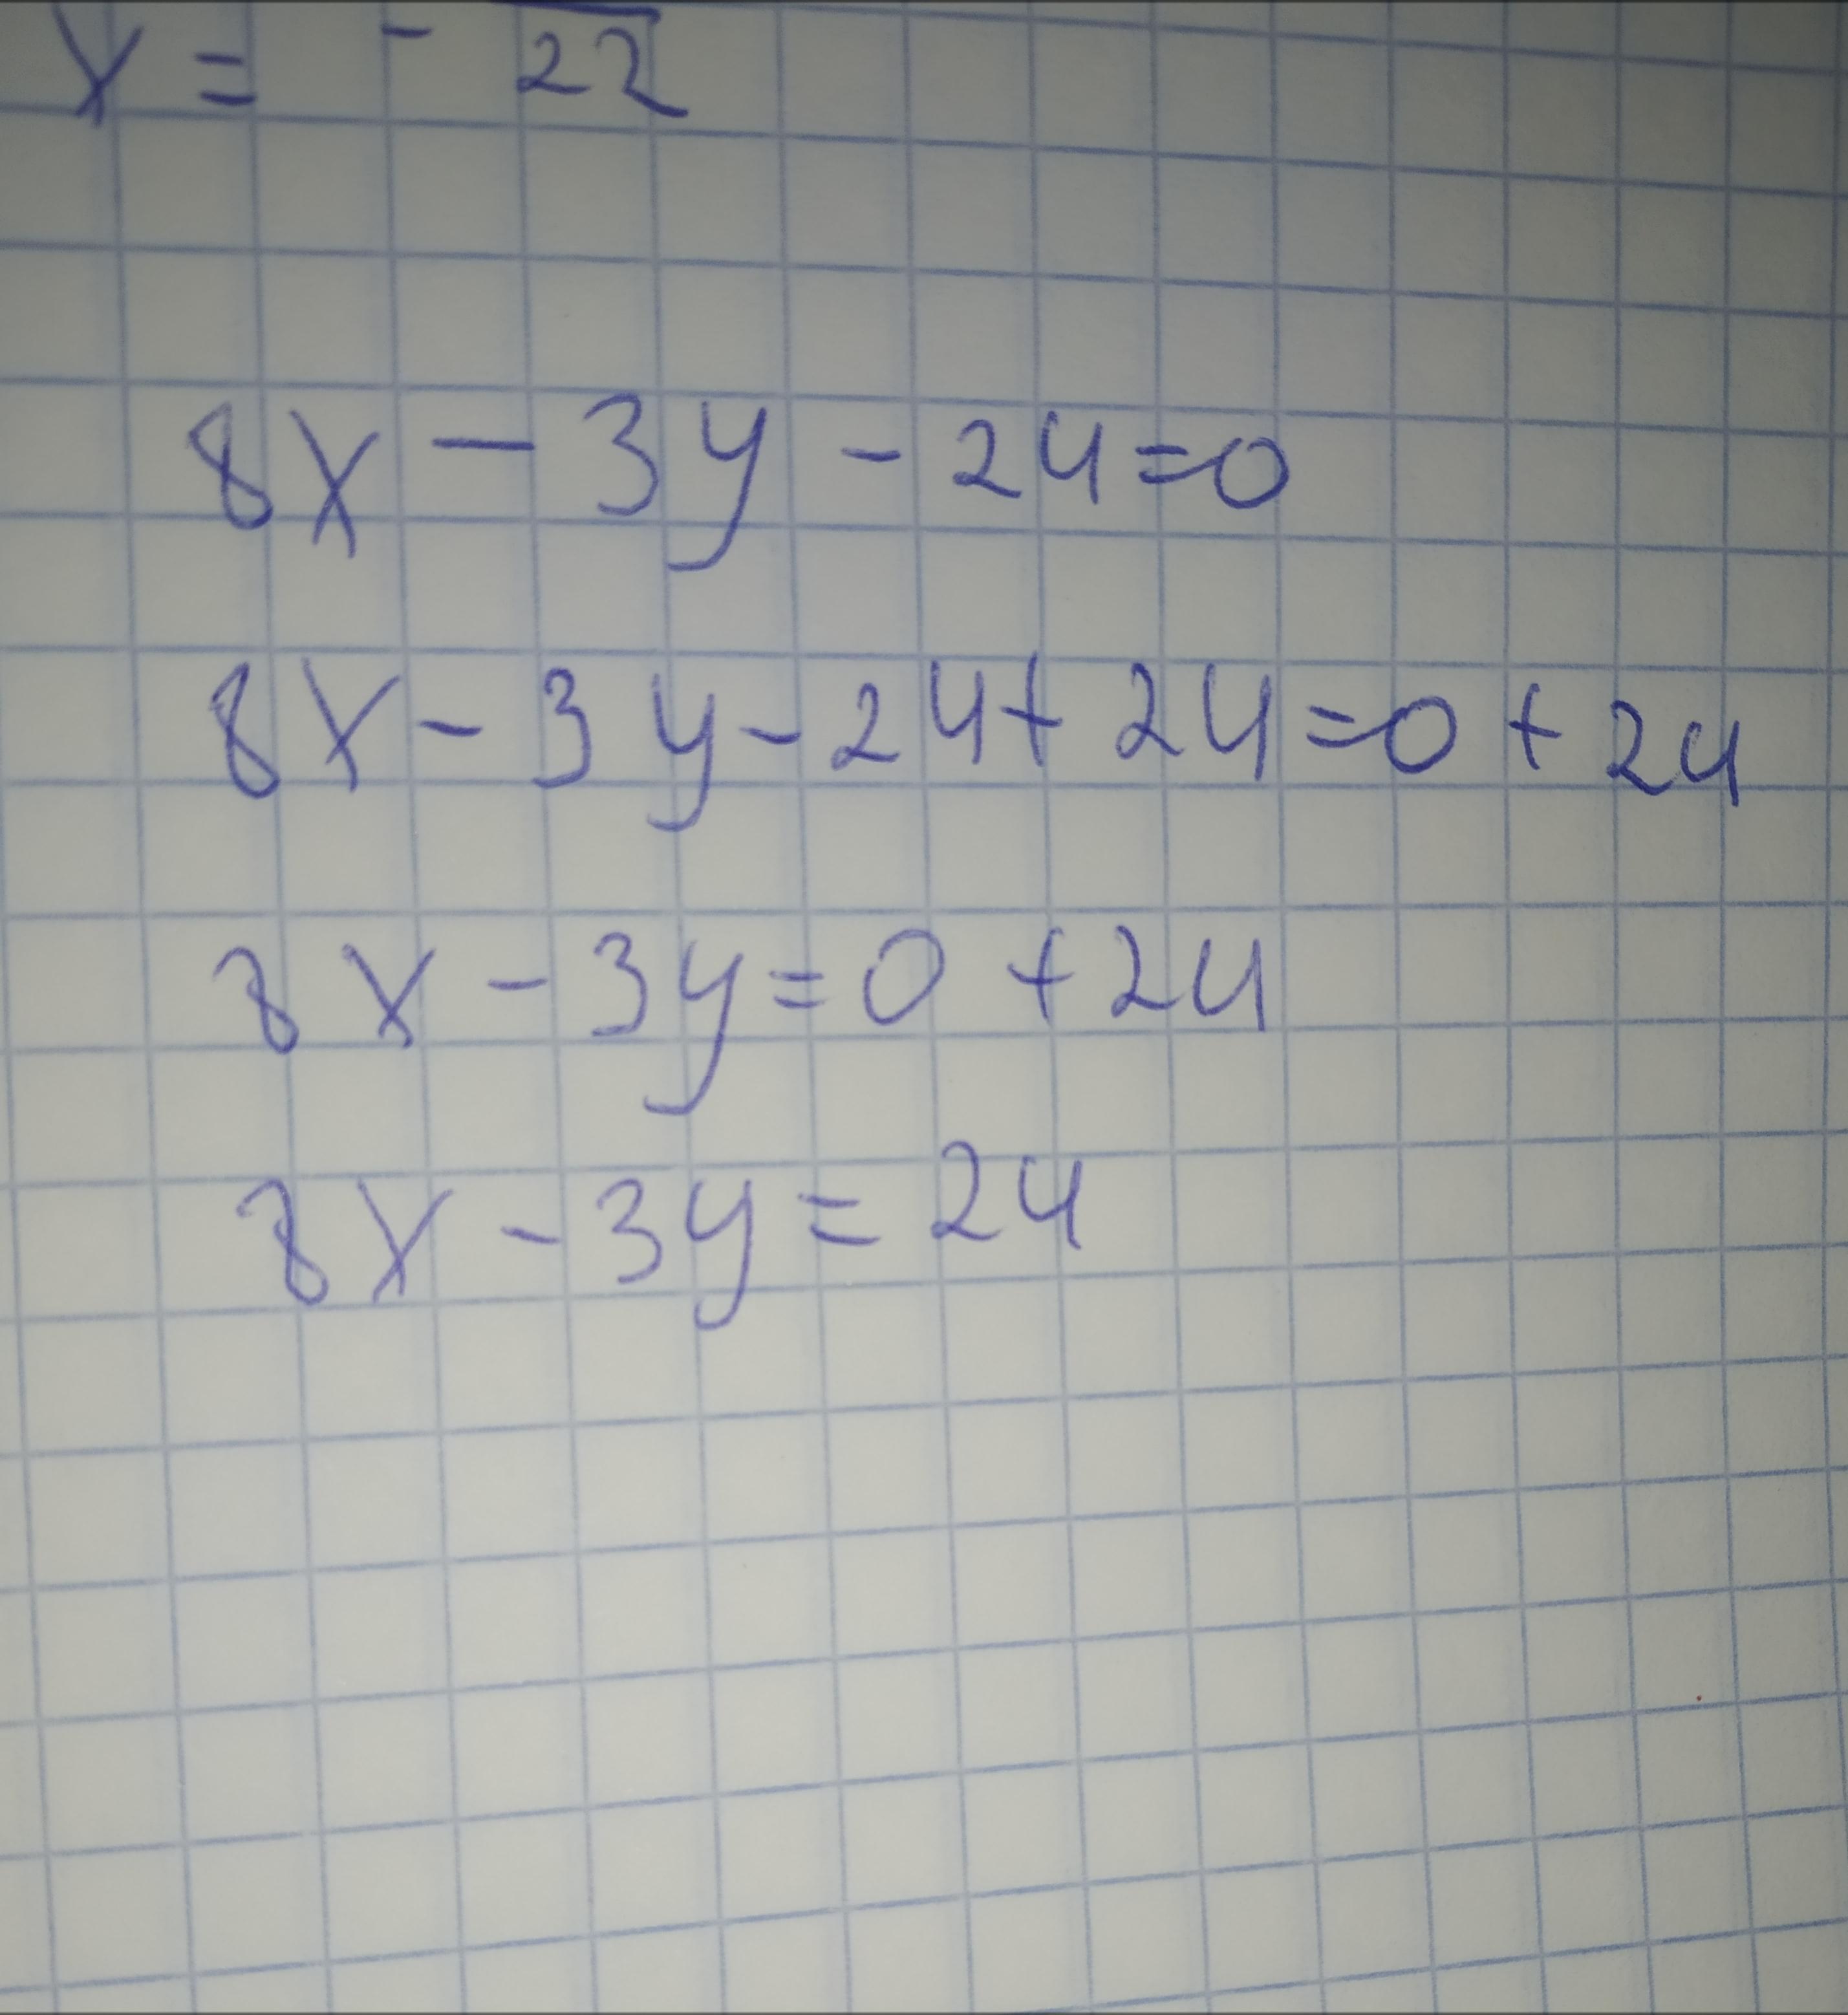 x = - 22
8x - 3y - 24 = 0
8x - 3y - 24 + 24 = 0 + 24
8x - 3y = 0 + 24
8x - 3y = 24